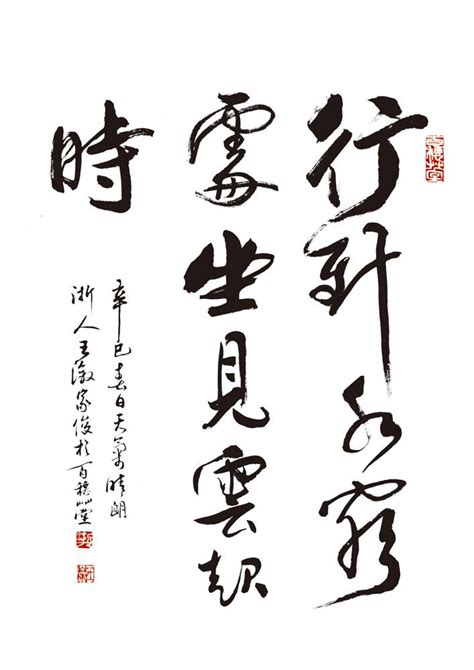 行到水窮
處坐見雲起
時
辛巳春日天氣晴朗
浙人王家俊於百穗草堂